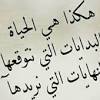 هكذا هي الحياة
البدايات التي نتوقعها
نهايات التي نريدها